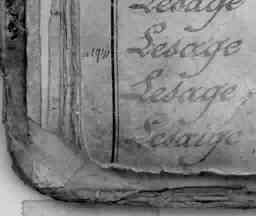 Lesage
Lesage
Lesage
Lesaige